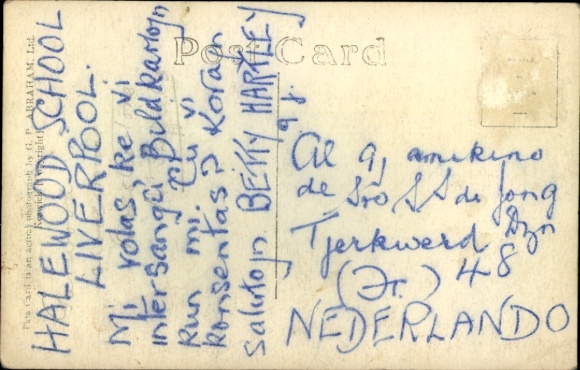 Post Card
This Card is an actual photograph by G. P. ABRAHAM, Ltd.
Keswick (Copyright)
HALEWOOD SCHOOL
LIVERPOOL.
Mi volas, ke vi
intersangŭ Bildkartojn
kun mi. Ĉu vi
konsentas? Koran
salutojn BETTY HARTLEY
9 j.
Al 9j amikino
de Sro S S de Jong
Dzn
Tjerkwerd 48
(Fr.)
NEDERLANDO